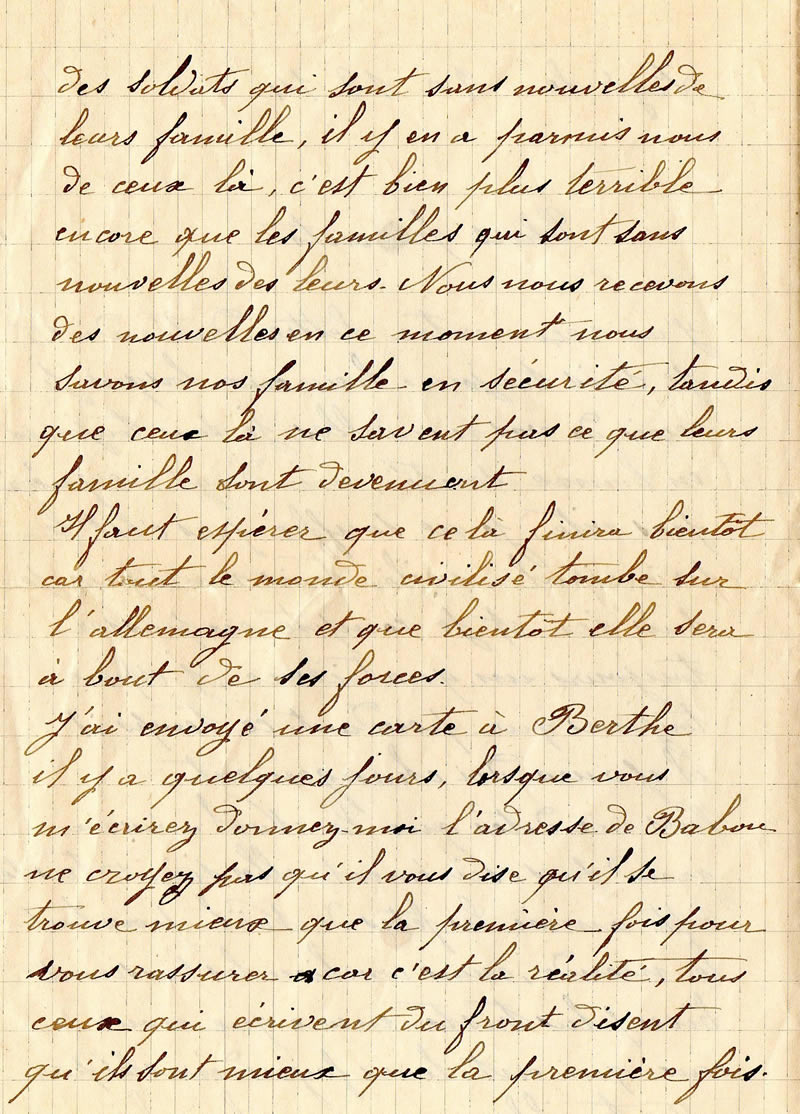 des soldats qui sont sans nouvelles de
leurs famille, il y en a parmis nous
de ceux là, c'est bien plus terrible
encore que les familles qui sont sans
nouvelles des leurs. Nous nous recevons
des nouvelles en ce moment nous
savons nos famille en sécurité, tandis
que ceux là ne savent pas ce que leurs
famille sont devenuent
Il faut espérer que celà finira bientôt
car tout le monde civilisé tombe sur
l'allemagne et que bientôt elle sera
à bout de ses forces.
J'ai envoyé une carte à Berthe
il y a quelques jours, lorsque vous
m'écrirez donnez-moi l'adresse de Babou
ne croyez pas qu'il vous dise qu'il se
trouve mieux que la première fois pour
vous rassurer car c'est la réalité, tous
ceux qui écrivent du front disent
qu'ils sont mieux que la première fois.